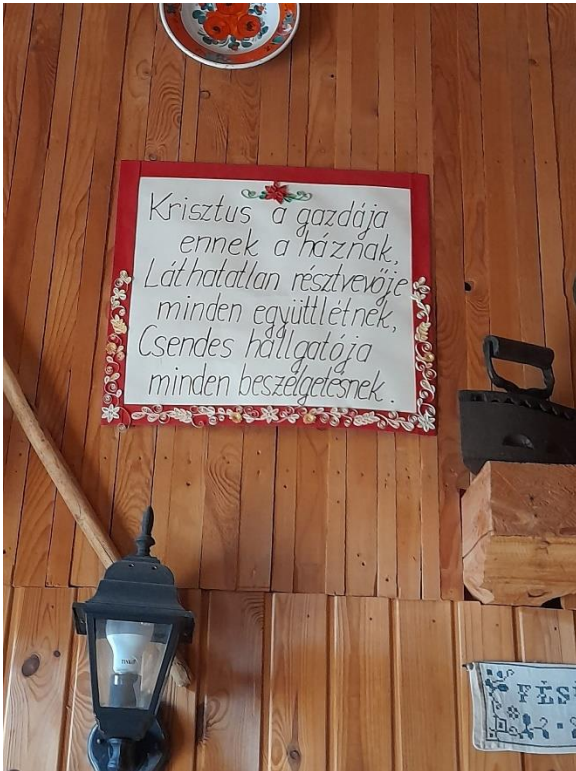 Krisztus a gazdája
ennek a háznak,
Láthatatlan résztvevője
minden együttlétnek,
Csendes hallgatója
minden beszélgetésnek.